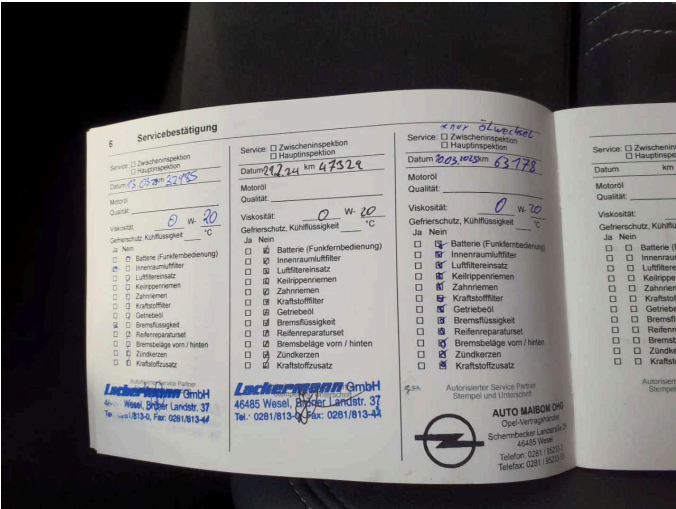 6 Servicebestätigung
Service: □ Zwischeninspektion
□ Hauptinspektion
Datum 13.03 km 32485
Motoröl
Qualität:
Viskosität: 0 W- 20
Gefrierschutz, Kühlflüssigkeit °C
Ja Nein
Batterie (Funkfernbedienung)
Innenraumluftfilter
Luftfiltereinsatz
Keilrippenriemen
Zahnriemen
Kraftstofffilter
Getriebeöl
Bremsflüssigkeit
Reifenreparaturset
Bremsbeläge vorn / hinten
Zündkerzen
Kraftstoffzusatz
Autorisierter Service Partner
Lackermann GmbH
Wesel, Brüner Landstr. 37
Tel. 0281/813-0, Fax: 0281/813-44
Service: □ Zwischeninspektion
□ Hauptinspektion
Datum 29.2.24 km 47329
Motoröl
Qualität:
Viskosität: 0 W- 20
Gefrierschutz, Kühlflüssigkeit °C
Ja Nein
Batterie (Funkfernbedienung)
Innenraumluftfilter
Luftfiltereinsatz
Keilrippenriemen
Zahnriemen
Kraftstofffilter
Getriebeöl
Bremsflüssigkeit
Reifenreparaturset
Bremsbeläge vorn / hinten
Zündkerzen
Kraftstoffzusatz
Lackermann GmbH
46485 Wesel, Brüner Landstr. 37
Tel.: 0281/813-0, Fax: 0281/813-44
Ölwechsel
Service: □ Zwischeninspektion
□ Hauptinspektion
Datum 20.03.2025 km 63178
Motoröl
Qualität:
Viskosität: 0 W- 20
Gefrierschutz, Kühlflüssigkeit °C
Ja Nein
Batterie (Funkfernbedienung)
Innenraumluftfilter
Luftfiltereinsatz
Keilrippenriemen
Zahnriemen
Kraftstofffilter
Getriebeöl
Bremsflüssigkeit
Reifenreparaturset
Bremsbeläge vorn / hinten
Zündkerzen
Kraftstoffzusatz
Autorisierter Service Partner
Stempel und Unterschrift
AUTO MAIBOM OHG
Opel-Vertragshändler
Schermbecker Landstraße
46485 Wesel
Telefon: 0281 /
Telefax: 0281 /
Service: □
□
Datum km
Motoröl
Qualität:
Viskosität:
Gefrierschutz,
Ja Nein